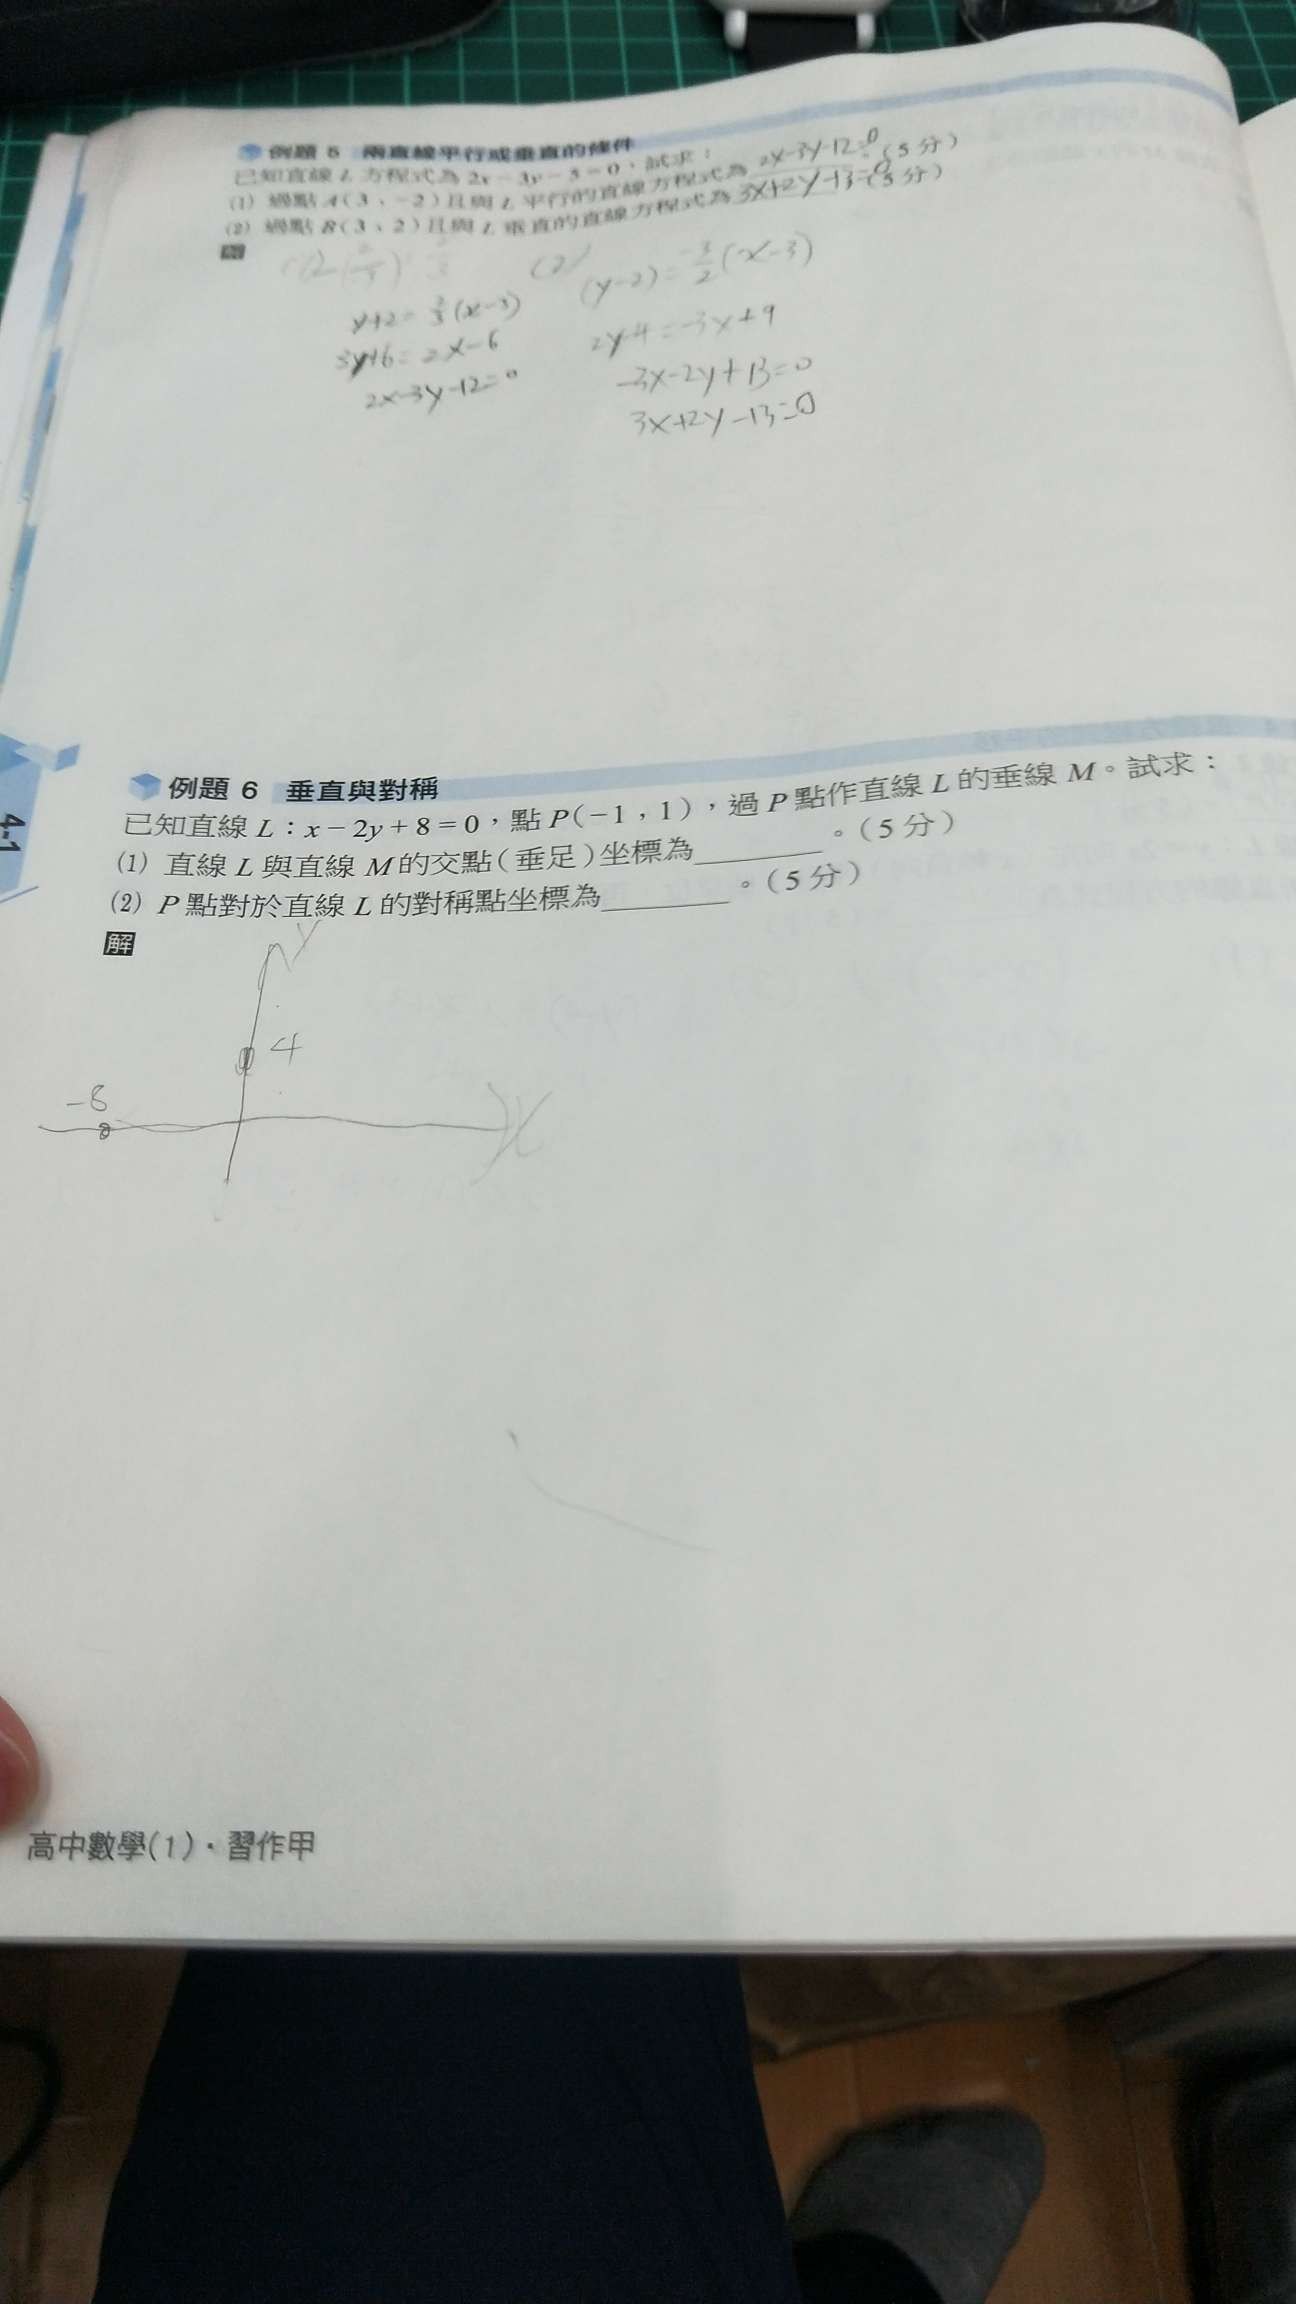 例題 5 兩直線平行或垂直的條件
已知直線 L 方程式為 2x－3y－5＝0，試求：
(1) 過點 A(3，－2)且與 L 平行的直線方程式為 2x-3y-12=0。(5 分)
(2) 過點 B(3，2)且與 L 垂直的直線方程式為 3x+2y-13=0。(5 分)
解
(2)
y+2=2/3(x-3)
3y+6=2x-6
2x-3y-12=0
(y-2)=-3/2(x-3)
2y-4=-3x+9
-3x-2y+13=0
3x+2y-13=0
例題 6 垂直與對稱
已知直線 L：x－2y＋8＝0，點 P(－1，1)，過 P 點作直線 L 的垂線 M。試求：
(1) 直線 L 與直線 M 的交點(垂足)坐標為________。(5 分)
(2) P 點對於直線 L 的對稱點坐標為________。(5 分)
解
y
4
-8
x
4-1
高中數學(1)・習作甲